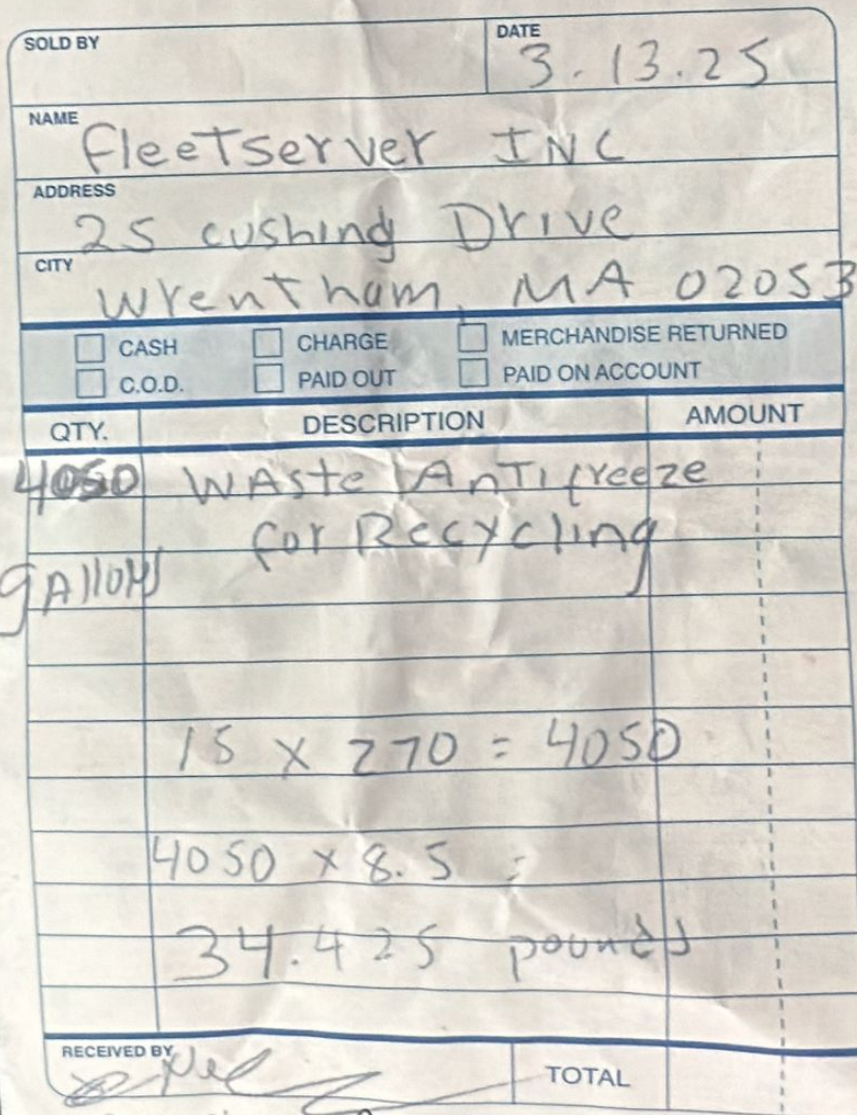 SOLD BY
DATE 3.13.25
NAME FleetServer INC
ADDRESS 25 cushing Drive
CITY Wrentham, MA 02053
CASH CHARGE MERCHANDISE RETURNED
C.O.D. PAID OUT PAID ON ACCOUNT
QTY. DESCRIPTION AMOUNT
4050 WAste AnTifreeze
for Recycling
gAllons
15 x 270 = 4050
4050 x 8.5 =
34.425 pounds
RECEIVED BY
TOTAL